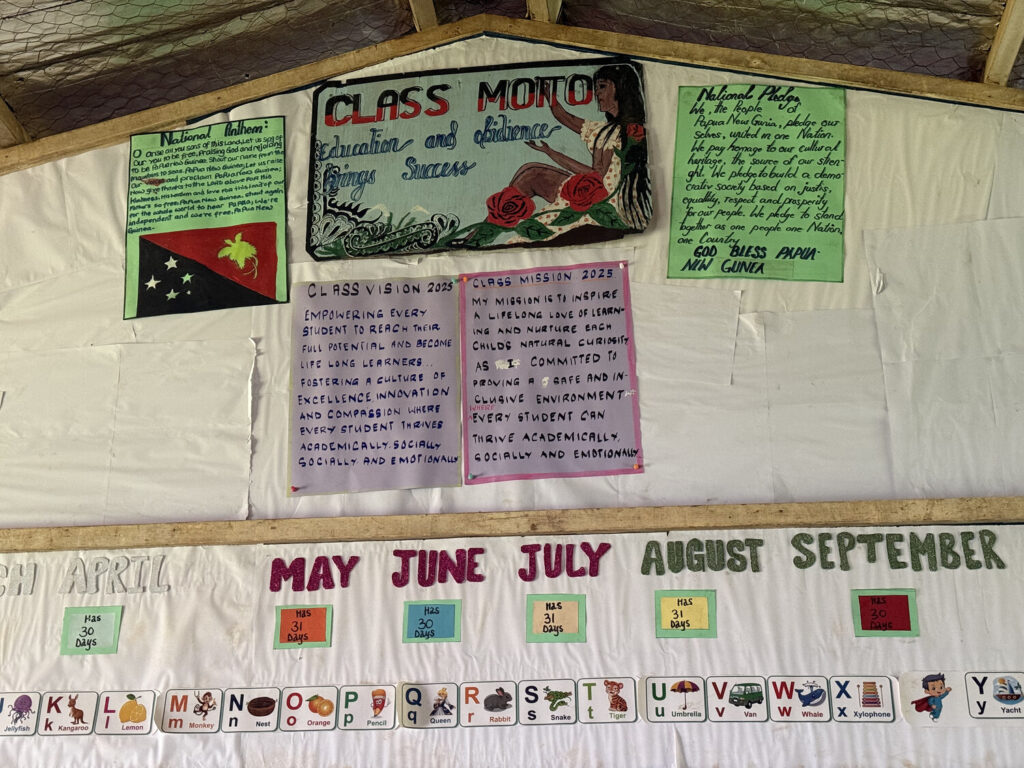 National Anthem:
O arise all you sons of this Land, Let us sing of
our joy to be free, Praising God and rejoicing
to be Papua New Guinea. Shout our name from the
mountains to seas. Papua New Guinea; Let us raise
our and proclaim Papua New Guinea;
Now give thanks to the Lord above for His
kindness, His wisdom and love for this land of our
Fathers so free. Papua New Guinea, shout again
for the whole world to hear Papua, We're
independent and we're free, Papua New
Guinea.
CLASS MOTTO
Education and Obidience
Brings Success
National Pledge
We, the People of
Papua New Guinia, pledge our
selves, united in one Nation.
We pay homage to our cultural
heritage, the source of our stren-
ght. We pledge to build a demo-
cratic society based on justis,
equality, respect and prosperity
for our people. We pledge to stand
together as one people one Nation,
one Country
GOD BLESS PAPUA-
NEW GUINEA
CLASS VISION 2025
EMPOWERING EVERY
STUDENT TO REACH THEIR
FULL POTENTIAL AND BECOME
LIFE LONG LEARNERS..
FOSTERING A CULTURE OF
EXCELLENCE, INNOVATION
AND COMPASSION WHERE
EVERY STUDENT THRIVES
ACADEMICALLY, SOCIALLY
SOCIALLY AND EMOTIONALLY
CLASS MISSION 2025
MY MISSION IS TO INSPIRE
A LIFELONG LOVE OF LEARN-
ING AND NURTURE EACH
CHILDS NATURAL CURIOSITY
AS I COMMITTED TO
PROVING A SAFE AND IN-
CLUSIVE ENVIRONMENT
WHERE EVERY STUDENT CAN
THRIVE ACADEMICALLY,
SOCIALLY AND EMOTIONALLY
CH APRIL MAY JUNE JULY AUGUST SEPTEMBER
Has
30
Days
Has
31
Days
Has
30
Days
Has
31
Days
Has
31
Days
Has
30
Days
J
Jellyfish
K k
Kangaroo
L l
Lemon
M m
Monkey
N n
Nest
O o
Orange
P p
Pencil
Q q
Queen
R r
Rabbit
S s
Snake
T t
Tiger
U u
Umbrella
V v
Van
W w
Whale
X x
Xylophone
Y y
Yacht